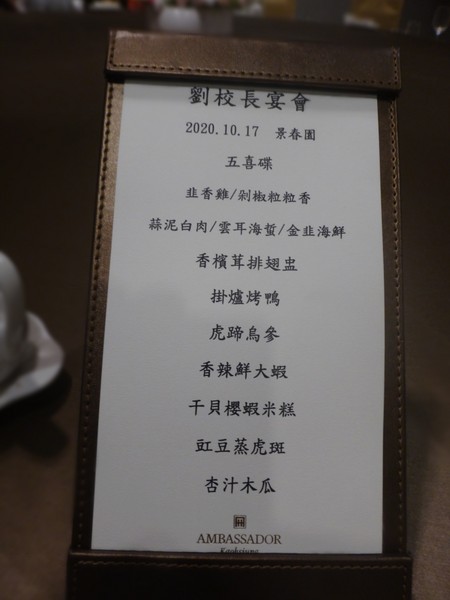 劉校長宴會
2020.10.17 景春園
五喜碟
韭香雞/剁椒粒粒香
蒜泥白肉/雲耳海蜇/金韭海鮮
香檳茸排翅盅
掛爐烤鴨
虎蹄烏參
香辣鮮大蝦
干貝櫻蝦米糕
豇豆蒸虎斑
杏汁木瓜
AMBASSADOR
Kaohsiung